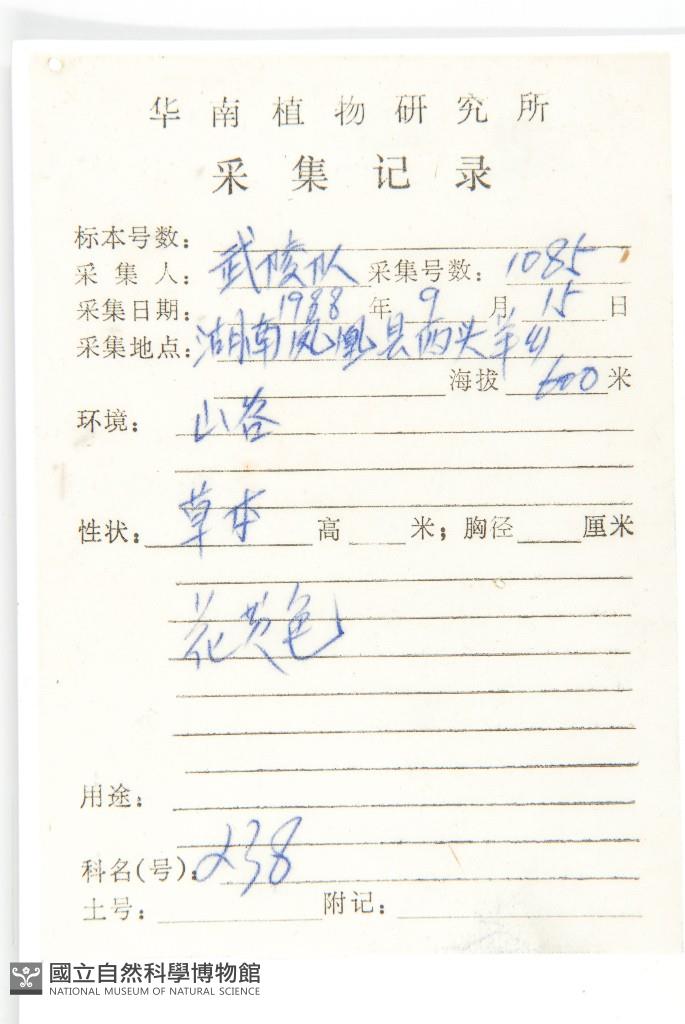 华南植物研究所
采集记录
标本号数：
采集人：武陵队 采集号数：1085
采集日期：1988年9月15日
采集地点：湖南凤凰县两头羊乡
海拔600米
环境：山谷
性状：草本 高 米；胸径 厘米
花黄色
用途：
科名(号)：238
土号： 附记：
國立自然科學博物館
NATIONAL MUSEUM OF NATURAL SCIENCE